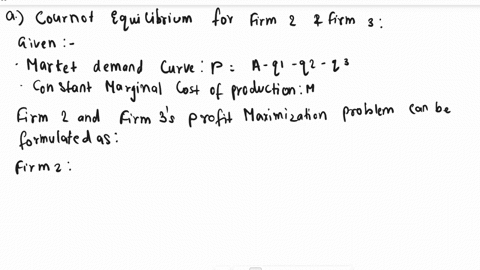 a.) Cournot Equilibrium for Firm 2 & Firm 3:
Given :-
· Market demand Curve: P = A - q1 - q2 - q3
· Constant Marginal Cost of production: M
Firm 2 and Firm 3's profit Maximization problem can be
formulated as:
Firm 2: